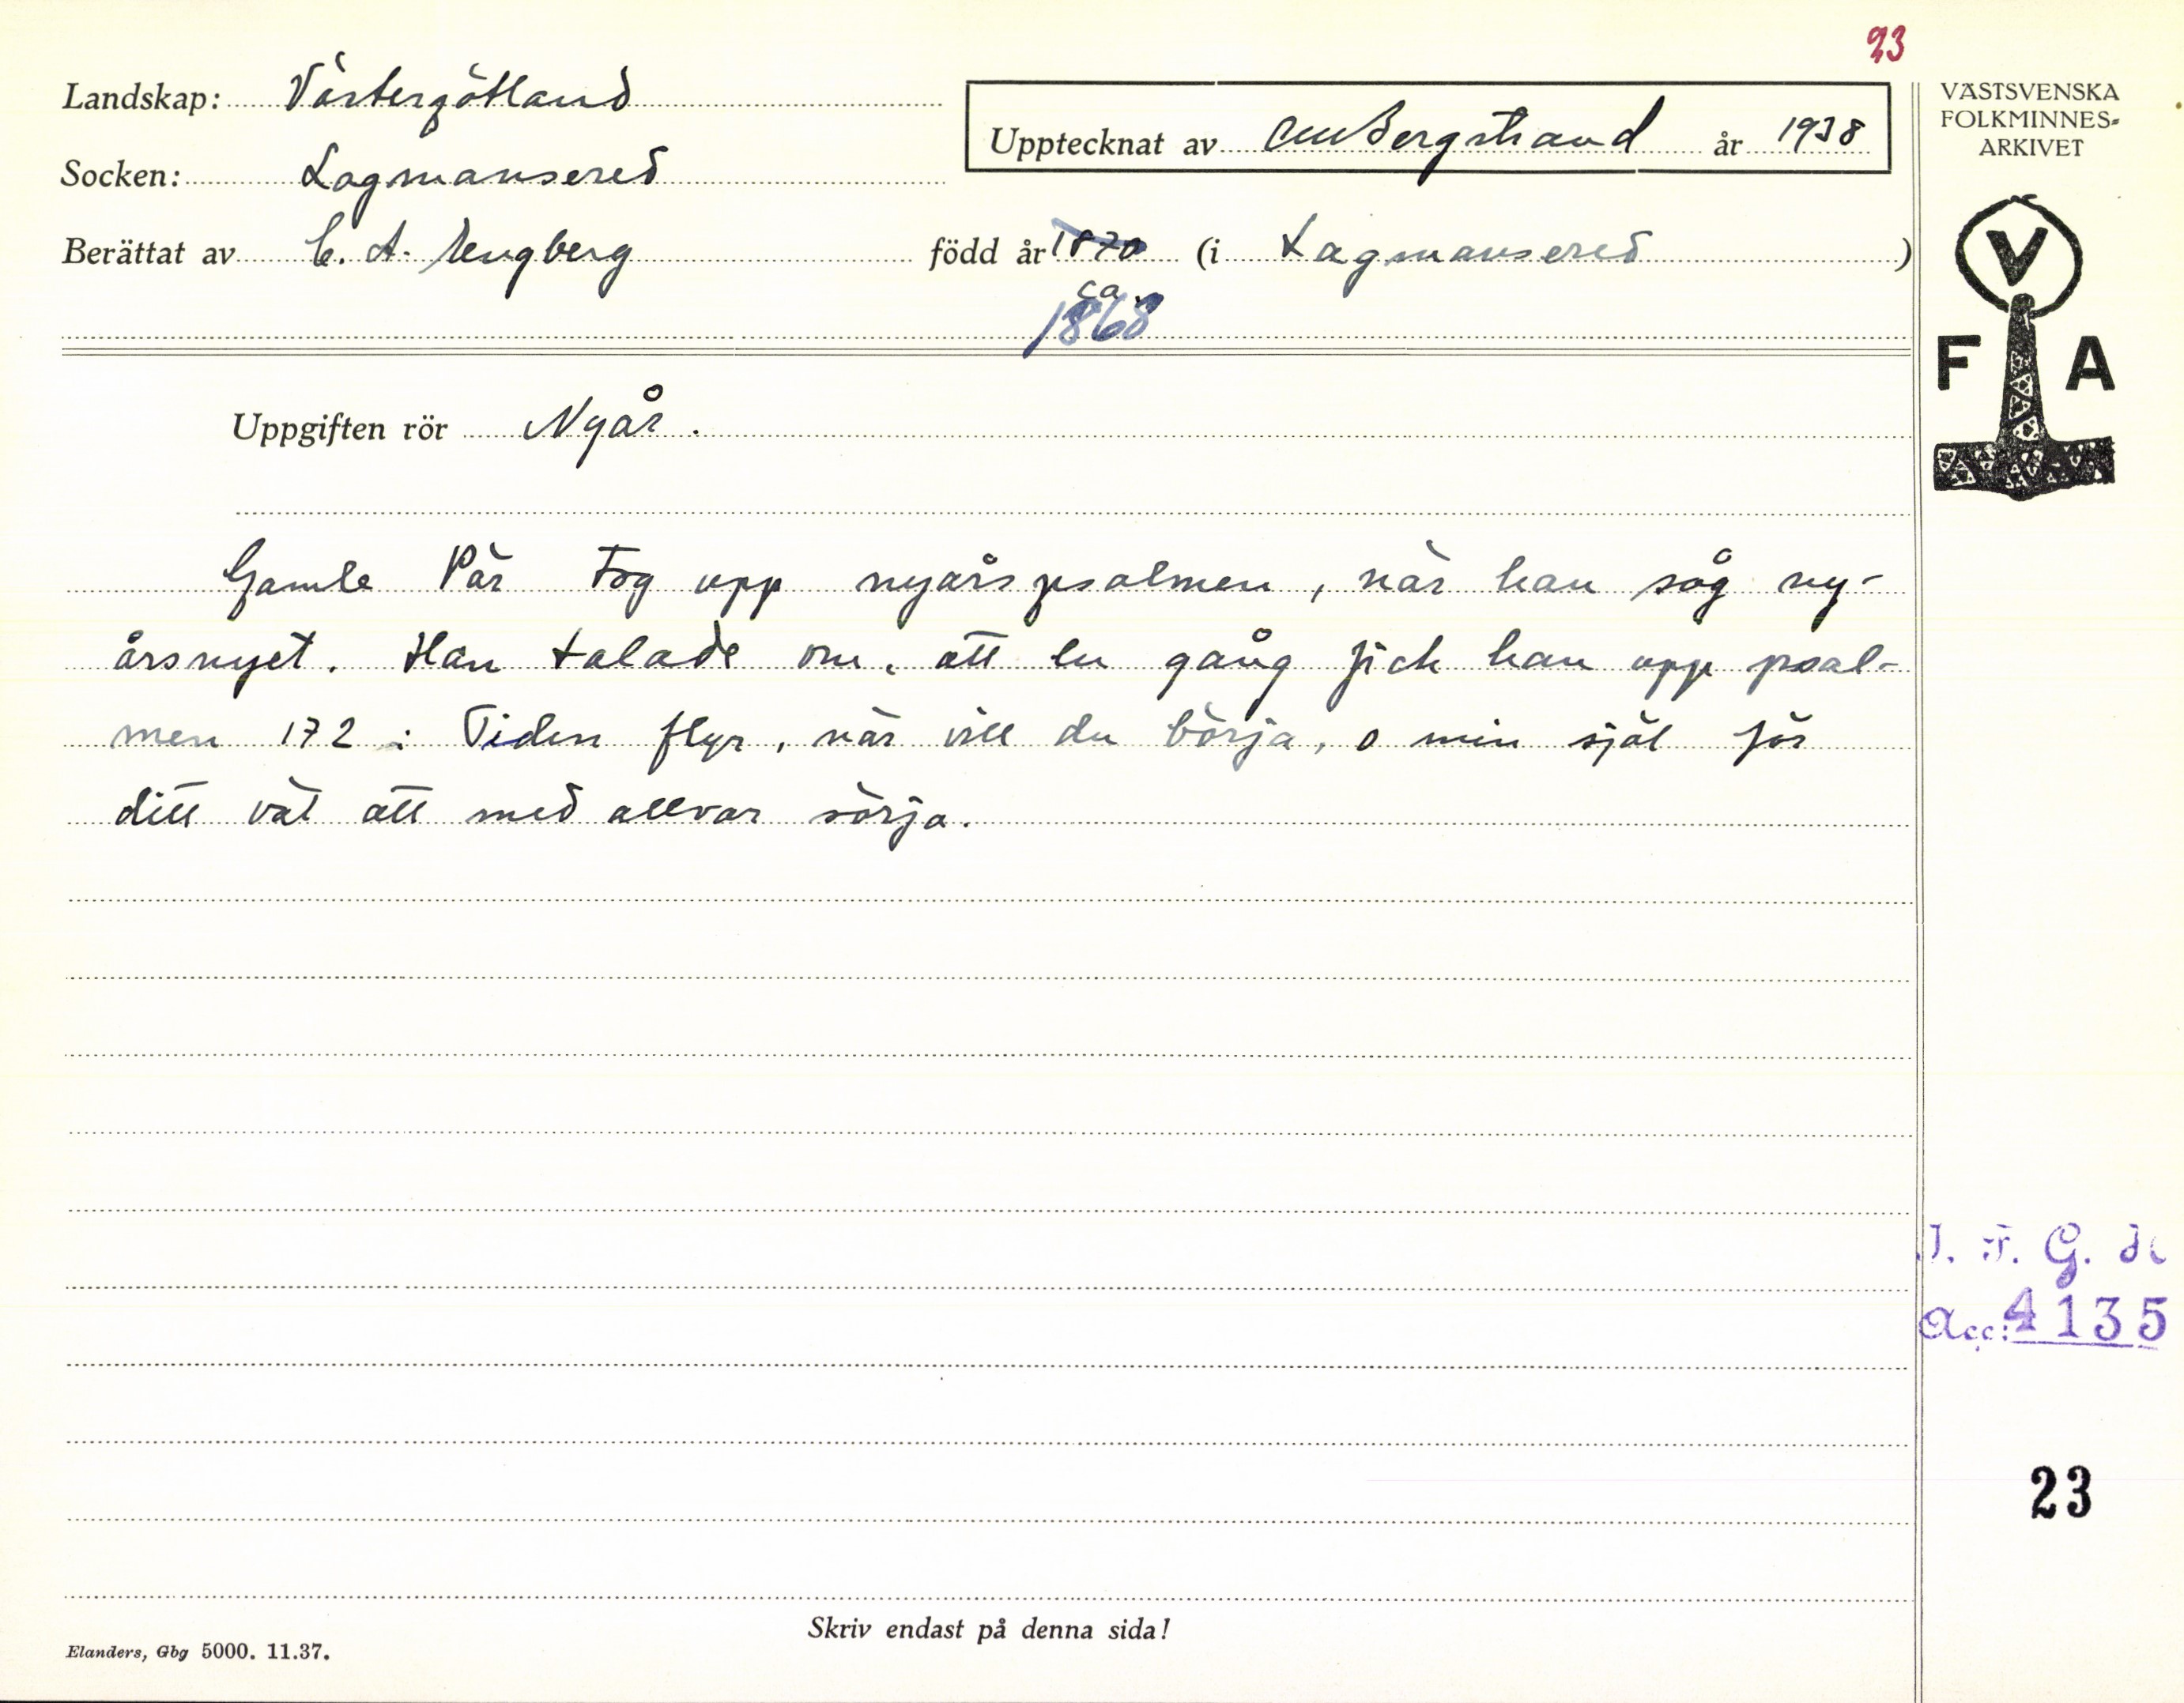 23
Landskap: Västergötland
Upptecknat av CMBergstrand år 1938
Socken: Lagmansered
Berättat av C. A. Ungberg född år 1870 (i Lagmansered)
ca.
1868
VÄSTSVENSKA
FOLKMINNES-
ARKIVET
V
F A
Uppgiften rör Nyår.
Gamle Pär tog upp nyårspsalmen, när han såg ny-
årsnyet. Han talade om, att en gång fick han upp psal-
men 172: Tiden flyr, när vill du börja, o min själ för
ditt väl att med allvar sörja.
I. F. G.
Acc: 4135
23
Skriv endast på denna sida!
Elanders, Gbg 5000. 11.37.